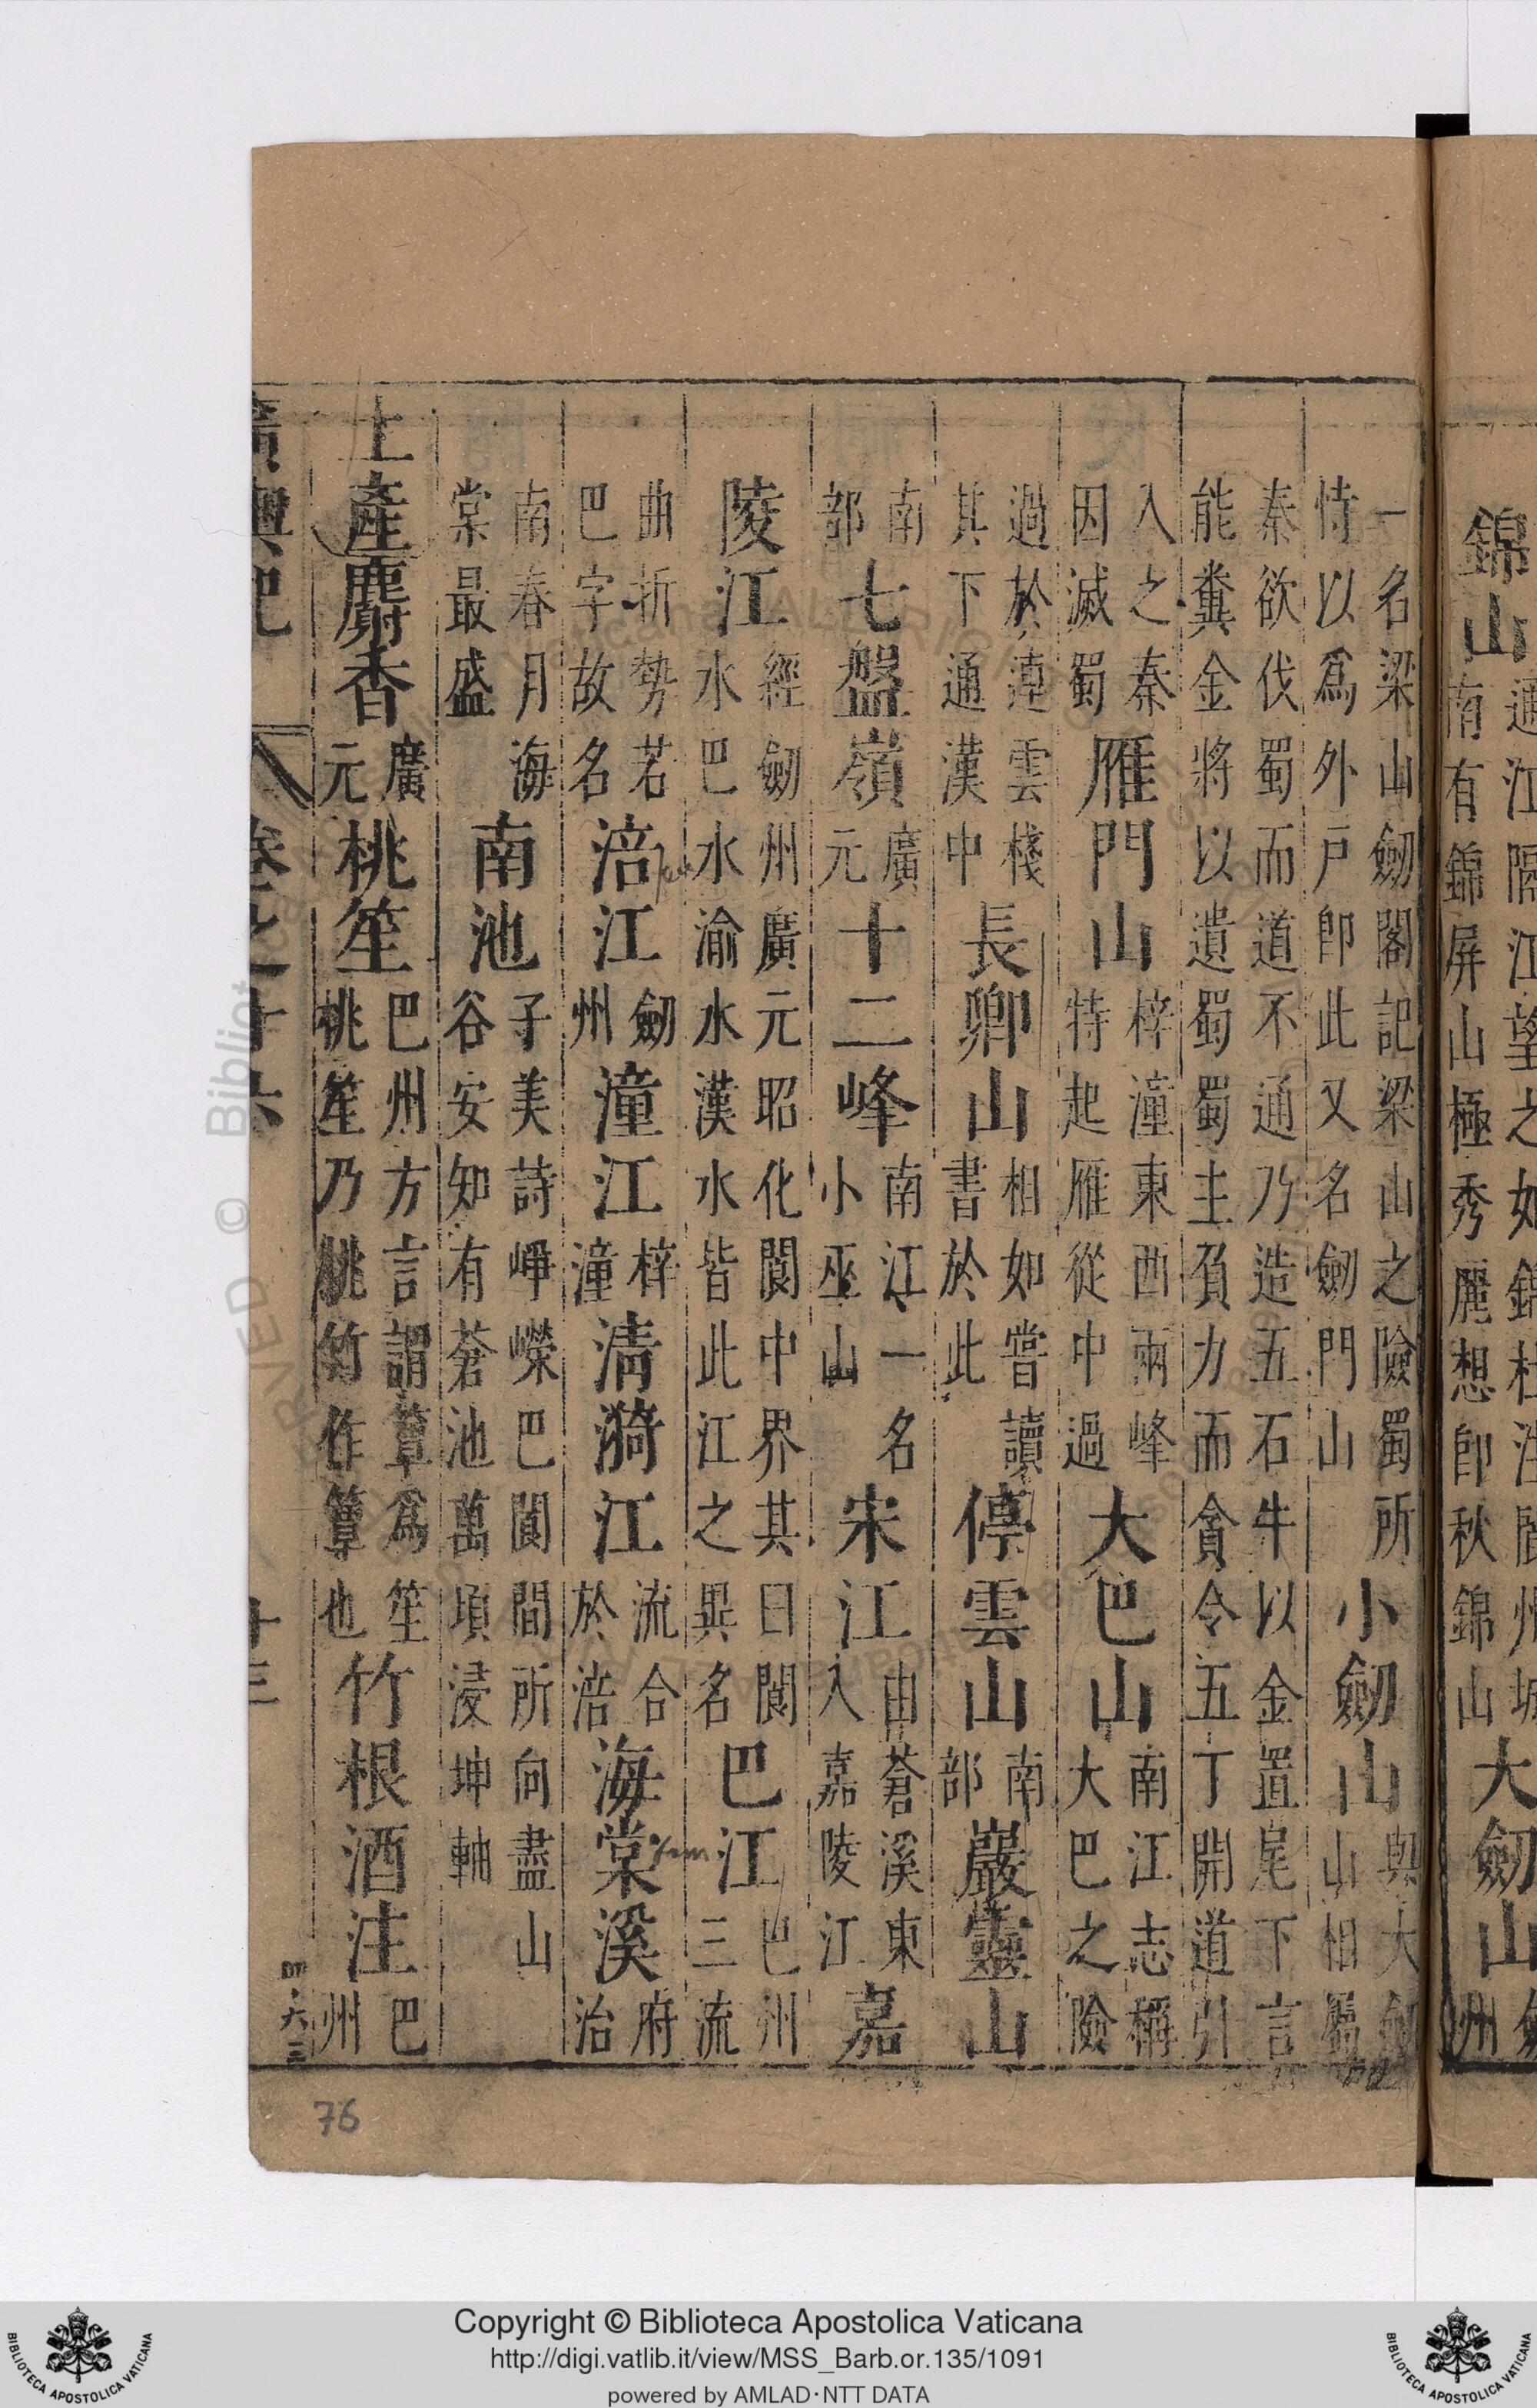 錦山通江隔江望之如錦杜注閬州城南有錦屏山極秀麗想卽秋錦山大劒山劒州
一名梁山劒閣記梁山之險蜀所恃以爲外戶卽此又名劒門山小劒山與大劒山相屬
秦欲伐蜀而道不通乃造五石牛以金置尾下言能糞金將以遺蜀蜀主負力而貪令五丁開道引
入之秦因滅蜀雁門山梓潼東西兩峰特起雁從中過大巴山南江志稱大巴之險
過於連雲棧其下通漢中長卿山相如嘗讀書於此停雲山南部巖靈山
南部七盤嶺廣元十二峰南江一名小巫山宋江由蒼溪東入嘉陵江嘉
陵江經劒州廣元昭化閬中界其曰閬水巴水渝水漢水皆此江之異名巴江巴州三流
曲折勢若巴字故名涪江劒州潼江梓潼淸漪江流合於涪海棠溪府治
南春月海棠最盛南池子美詩崢嶸巴閬間所向盡山谷安知有蒼池萬頃浸坤軸
土產麝香廣元桃笙巴州方言謂簟爲笙桃笙乃桃竹作簟也竹根酒注巴州
廣輿記 卷之十六 十三
76
Copyright © Biblioteca Apostolica Vaticana
http://digi.vatlib.it/view/MSS_Barb.or.135/1091
powered by AMLAD·NTT DATA
BIBLIOTECA APOSTOLICA VATICANA
BIBLIOTECA APOSTOLICA VATICANA